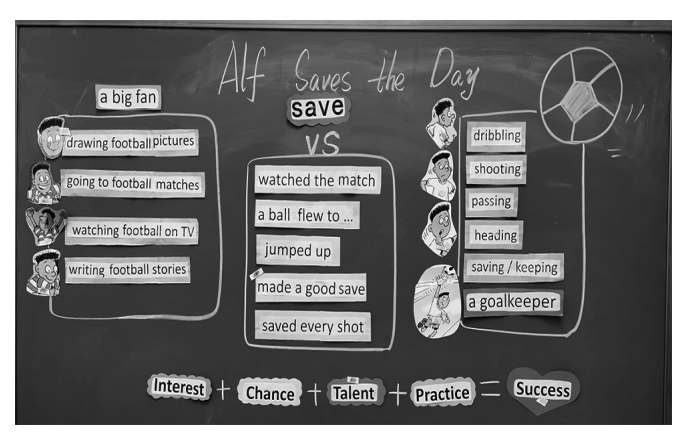 Alf Saves the Day
save
VS
a big fan
drawing football pictures
going to football matches
watching football on TV
writing football stories
watched the match
a ball flew to ...
jumped up
made a good save
saved every shot
dribbling
shooting
passing
heading
saving / keeping
a goalkeeper
Interest + Chance + Talent + Practice = Success